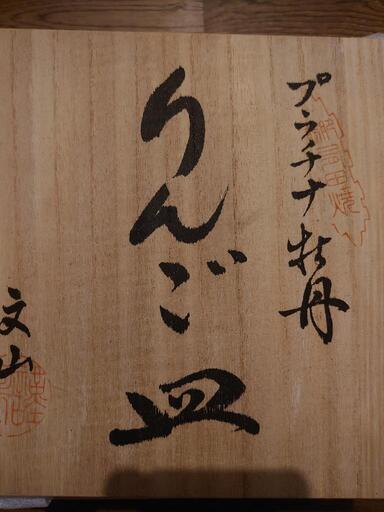 プラチナ牡丹
りんご皿
文山